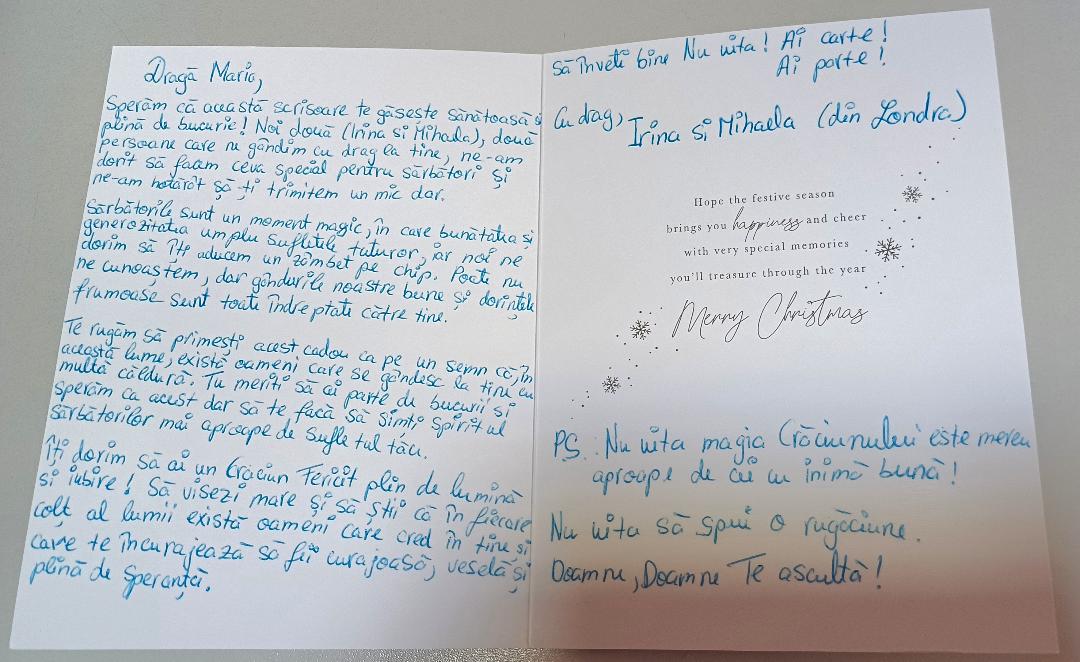 Dragă Maria,
Sperăm că această scrisoare te găsește sănătoasă și
plină de bucurie! Noi două (Irina si Mihaela), două
persoane care ne gândim cu drag la tine, ne-am
dorit să facem ceva special pentru sărbători și
ne-am hotărât să-ți trimitem un mic dar.
Sărbătorile sunt un moment magic, în care bunătatea și
generozitatea umplu sufletele tuturor, iar noi ne
dorim să îți aducem un zâmbet pe chip. Poate nu
ne cunoaștem, dar gândurile noastre bune și dorințele
frumoase sunt toate îndreptate către tine.
Te rugăm să primești acest cadou ca pe un semn că, în
această lume, există oameni care se gândesc la tine cu
multă căldură. Tu meriți să ai parte de bucurii si
sperăm ca acest dar să te facă să simți spiritul
sărbătorilor mai aproape de sufletul tău.
Îți dorim să ai un Crăciun Fericit plin de lumină
si iubire! Să visezi mare și să știi că în fiecare
colț al lumii există oameni care cred în tine si
care te încurajează să fii curajoasă, veselă și
plină de speranță.
Să înveți bine Nu uita! Ai carte!
Ai parte!
Cu drag,
Irina si Mihaela (din Londra)
Hope the festive season
brings you happiness and cheer
with very special memories
you'll treasure through the year
Merry Christmas
PS.: Nu uita magia Crăciunului este mereu
aproape de cei cu inimă bună!
Nu uita să spui o rugăciune.
Doamne, Doamne Te ascultă!